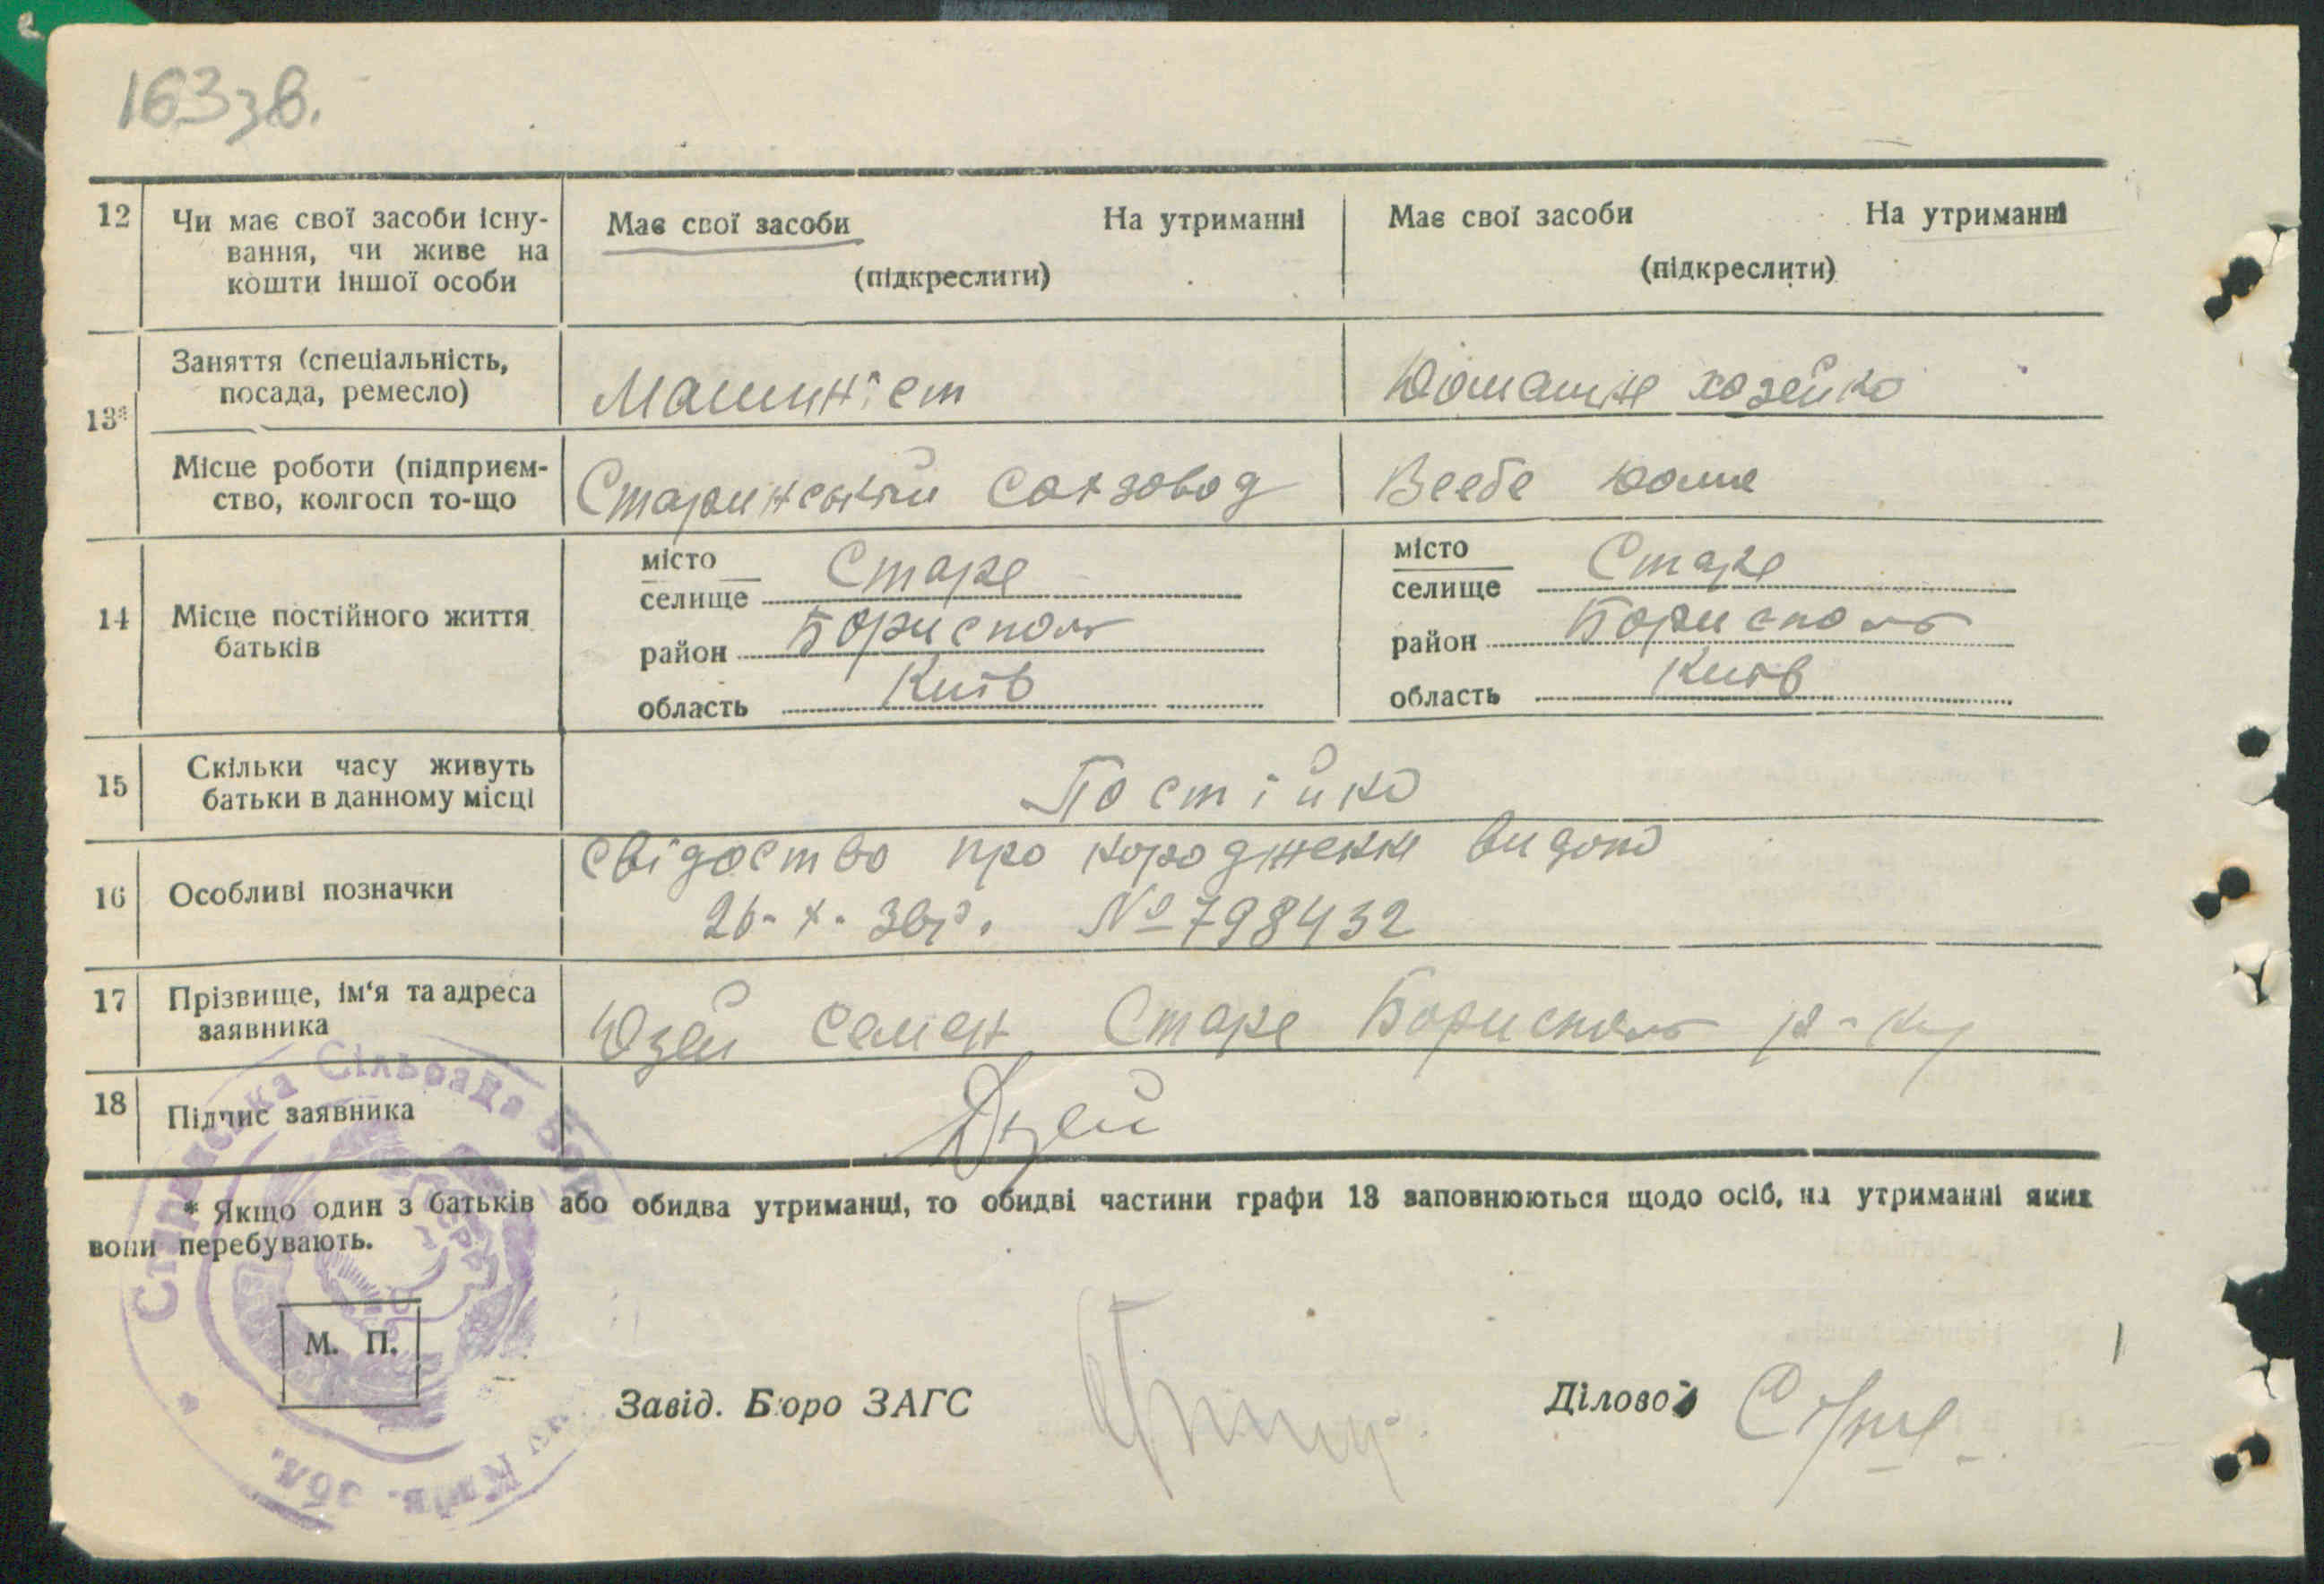 163 зв.
12 Чи має свої засоби існу- Має свої засоби На утриманні Має свої засоби На утриманні
вання, чи живе на (підкреслити) (підкреслити)
кошти іншої особи
13* Заняття (спеціальність, Машиніст Домашне хазейко
посада, ремесло)
Місце роботи (підприєм- Старинський Сахзовод Всебе дома
ство, колгосп то-що
14 Місце постійного життя батьків
місто Старе місто Старе
селище селище
район Бориспољ район Бориспољ
область Київ область Київ
15 Скільки часу живуть Постійно
батьки в данному місці
16 Особливі позначки свідоство про народження видоно
26-X- № 798432
17 Прізвище, ім'я та адреса Дзей Семен Старе Бориспољ р-ну
заявника
18 Підпис заявника Дзей
* Якщо один з батьків або обидва утриманці, то обидві частини графи 13 заповнюються щодо осіб, на утриманні яких
вони перебувають.
Старинська Сільрада
Київ. обл.
М. П.
Завід. Бюро ЗАГС Діловод